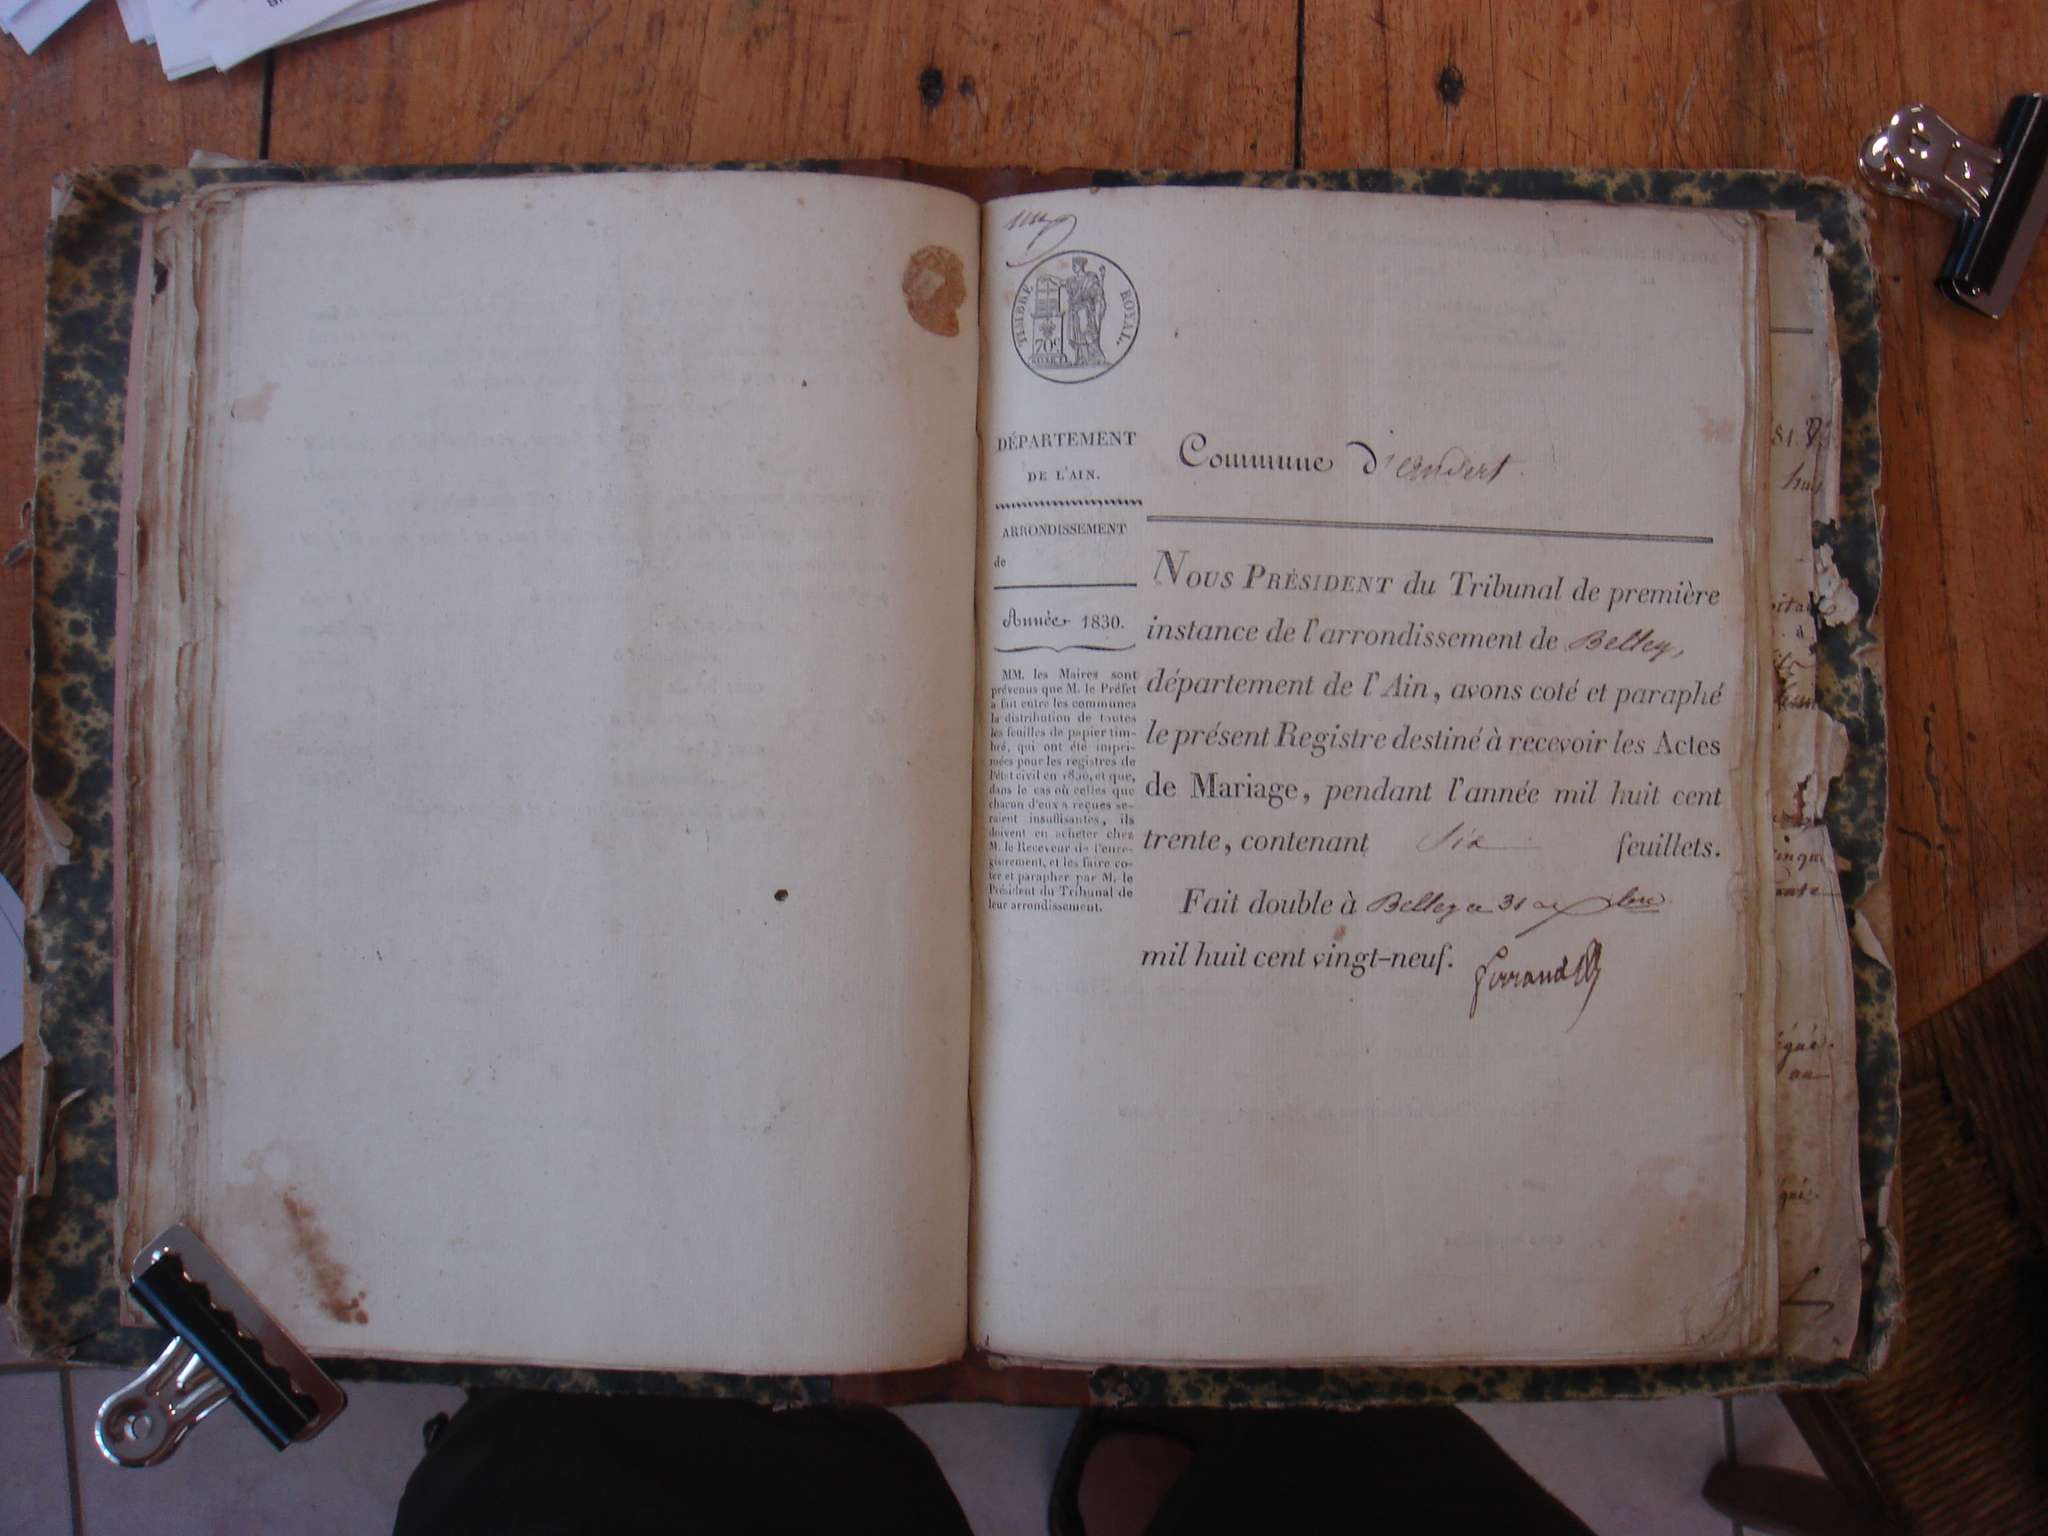 TIMBRE ROYAL.
70c
DÉPARTEMENT
DE L'AIN.
ARRONDISSEMENT
de
Année 1830.
MM. les Maires sont
prévenus que M. le Préfet
a fait entre les communes
la distribution de toutes
les feuilles de papier tim-
bré, qui ont été impri-
mées pour les registres de
l'état civil en 1830, et que,
dans le cas où celles que
chacun d'eux a reçues se-
raient insuffisantes, ils
doivent en acheter chez
M. le Receveur de l'enre-
gistrement, et les faire co-
ter et parapher par M. le
Président du Tribunal de
leur arrondissement.
Commune d'Andert.
NOUS PRÉSIDENT du Tribunal de première
instance de l'arrondissement de Belley,
département de l'Ain, avons coté et paraphé
le présent Registre destiné à recevoir les Actes
de Mariage, pendant l'année mil huit cent
trente, contenant six feuillets.
Fait double à Belley ce 31 Xbre
mil huit cent vingt-neuf.